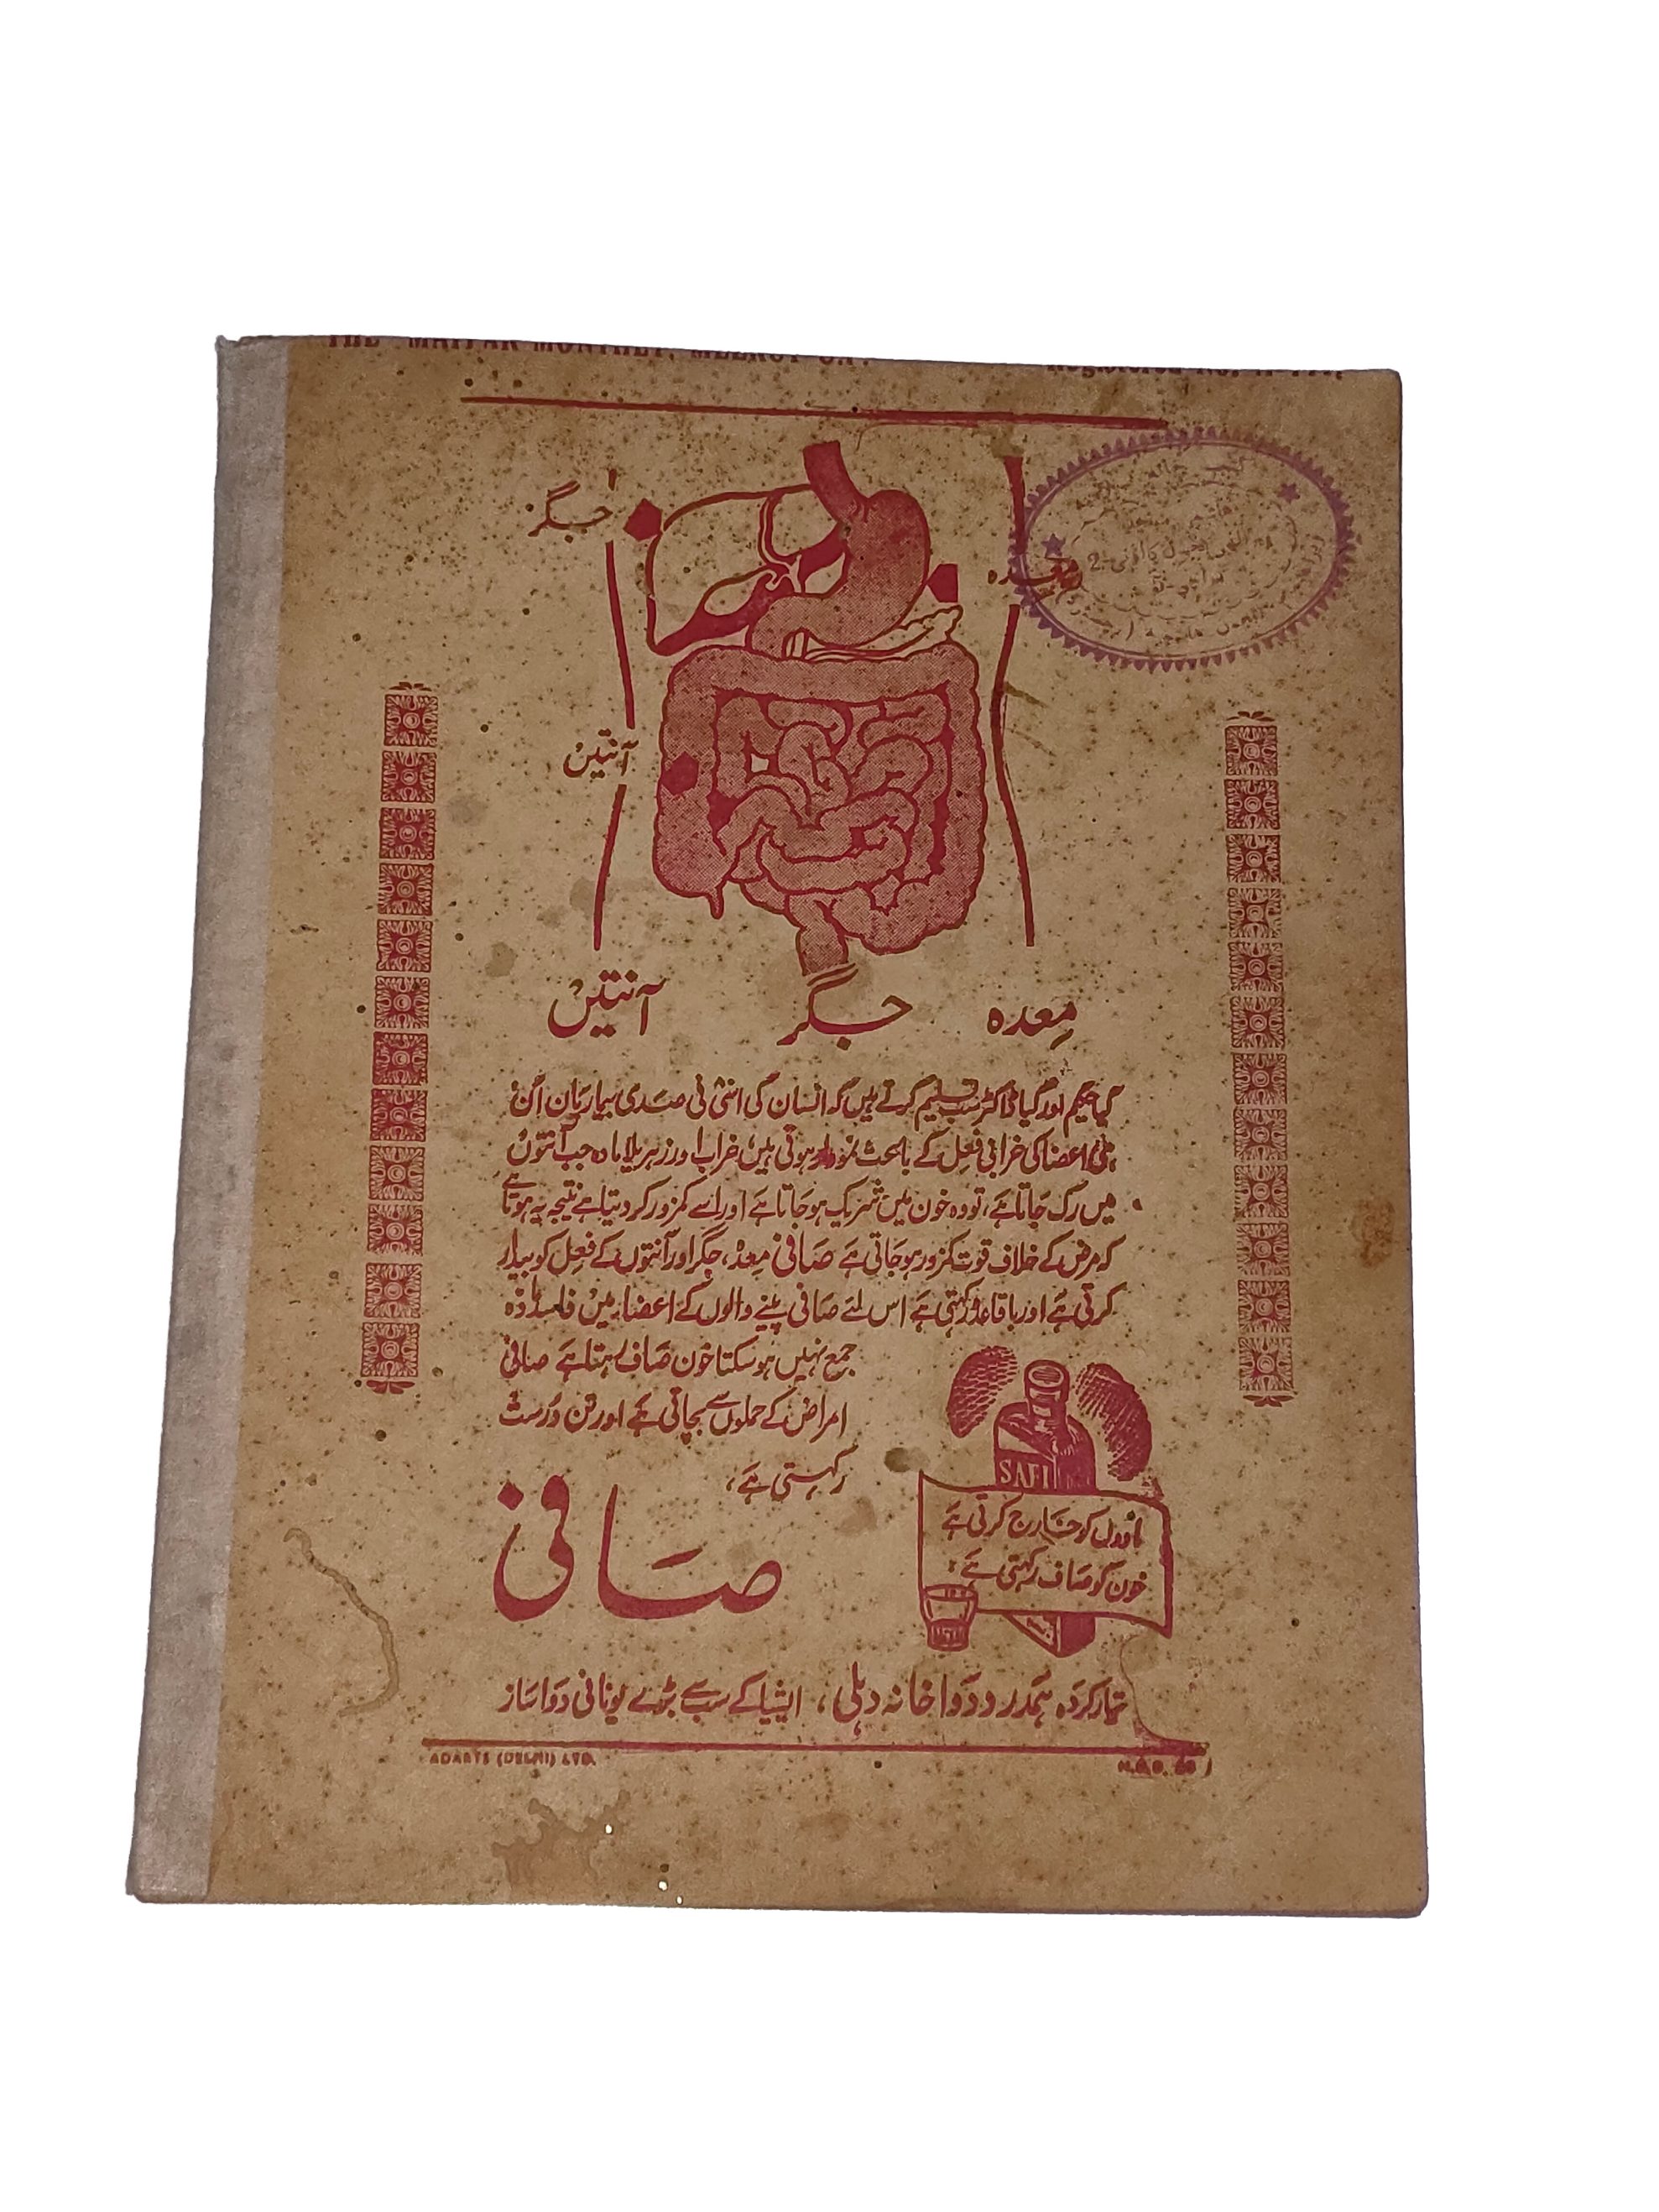 THE MAYYAR MONTHLY, MEERUT
Registered No.
جگر
معدہ
آنتیں
معدہ جگر آنتیں
کیا حکیم اور کیا ڈاکٹر سب تسلیم کرتے ہیں کہ انسان کی اسّی فی صدی بیماریاں اِن
ہی اعضا کی خرابی فعل کے باعث نمودار ہوتی ہیں، خراب اور زہریلا مادہ جب آنتوں
میں رک جاتا ہے، تو وہ خون میں شریک ہوجاتا ہے اور اسے کمزور کر دیتا ہے نتیجہ یہ ہوتا ہے
کہ مرض کے خلاف قوت کمزور ہوجاتی ہے صافی معدہ، جگر اور آنتوں کے فعل کو بیدار
کرتی ہے اور باقاعدہ رکھتی ہے اس لئے صافی پینے والوں کے اعضاء میں فاسد مادہ
جمع نہیں ہوسکتا خون صاف رہتا ہے صافی
امراض کے حملوں سے بچاتی ہے اور تن درست
رکھتی ہے،
SAFI
مادوں کو خارج کرتی ہے
خون کو صاف رکھتی ہے
صافی
تیار کردہ ہمدرد دواخانہ دہلی، ایشیا کے سب سے بڑے یونانی دواساز
ADARTS (DELHI) LTD.